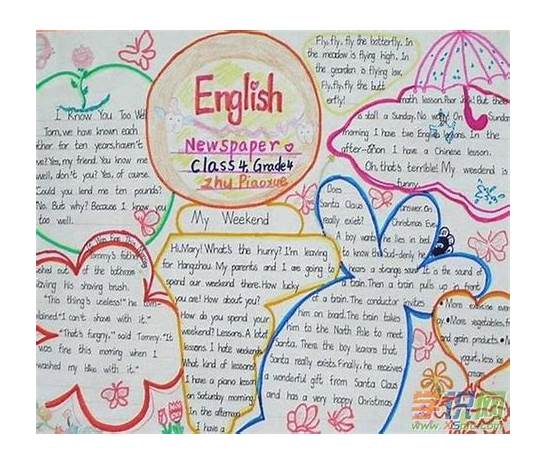 English
Newspaper
Class4, Grade4
Zhu Piaoxue
Fly, fly, fly the butterfly. In
the meadow is flying high. In
the gearden is flying low,
Fly, fly, fly the butt
erfly!
I Know You Too Well
Tom, we have known each
other for ten years, haven't
we? Yes, my friend. You know me
well, don't you? Yes, of course.
Could you lend me ten pounds?
No. But why? Because I know you
too well.
Tommy's father
shed out of the bathroom
aving his shaving brush.
"This thing's useless!" he
plained. "I can't shave with it."
"That's fungny," said Tommy. "It
was fine this morning when I
washed my bike with it."
My Weekend
Hi, Mary! What's the hurry? I'm leaving
for Hangzhou. My parents and I am going to
spend our weekend there. How lucky
you are! How about you?
How do you spend your
weekend? Lessons. A lot of
lessons. I hate weekends
What kind of lessons
I have a piano lesson
on Saturday morning.
In the afternoon
I have a
math lesson. Poor But there
is stall a Sunday. No w On Sunday
morning I have two English lessons. In the
after-noon I have a Chinese lesson.
Oh, that's terrible! My weedend is
funny.
Does
Santa Claus
really exist?
A boy wants
to know the answer. On
Christmas Eve
he lies in bed.
Sud-denly, he
hears a strange sound. It is the sound of
a train. Then a train pulls up in front
of a train. The conductor invites
him on board. The train takes
him to the North Pole to meet
Santa. There the boy learns that
Santa really exists. Finally, he receives
a wonderful gift from Santa Claus
and has a very happy Christmas
• More exercise every
• More vegetables, f
and grain products.
yogurt, less ice
cream.
学识网
www.xs